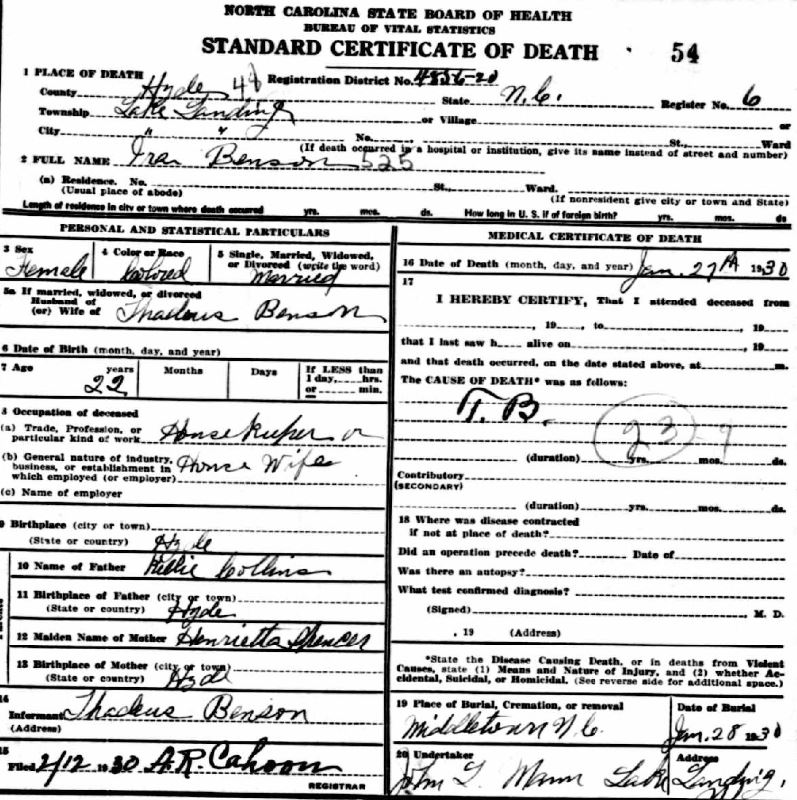 NORTH CAROLINA STATE BOARD OF HEALTH
BUREAU OF VITAL STATISTICS
STANDARD CERTIFICATE OF DEATH 54
1 PLACE OF DEATH
County Hyde 48 Registration District No. 4856-20 State N.C. Register No. 6
Township Lake Landing or Village or
City " " No. St., Ward
(If death occurred in a hospital or institution, give its name instead of street and number)
2 FULL NAME Ira Benson 525
(a) Residence. No. St., Ward.
(Usual place of abode) (If nonresident give city or town and State)
Length of residence in city or town where death occurred yrs. mos. ds. How long in U. S. if of foreign birth? yrs. mos. ds
PERSONAL AND STATISTICAL PARTICULARS
3 Sex
Female
4 Color or Race
Colored
5 Single, Married, Widowed,
or Divorced (write the word)
Married
5a If married, widowed, or divorced
Husband of
(or) Wife of Thadeus Benson
6 Date of Birth (month, day, and year)
7 Age years Months Days If LESS than
1 day, hrs.
or min.
22
8 Occupation of deceased
(a) Trade, Profession, or
particular kind of work House Keeper or
(b) General nature of industry,
business, or establishment in
which employed (or employer) House Wife
(c) Name of employer
9 Birthplace (city or town)
(State or country) Hyde
10 Name of Father Collins
11 Birthplace of Father (city or town)
(State or country) Hyde
12 Maiden Name of Mother Henrietta Spencer
13 Birthplace of Mother (city or town)
(State or country) Hyde
14
Informant Thadeus Benson
(Address)
15
Filed 2/12 1930 A.R. Cahoon
REGISTRAR
MEDICAL CERTIFICATE OF DEATH
16 Date of Death (month, day, and year) Jan. 27th 1930
17
I HEREBY CERTIFY, That I attended deceased from
, 19 , to , 19
that I last saw h alive on , 19
and that death occurred, on the date stated above, at m.
The CAUSE OF DEATH* was as follows:
T. B.
23
(duration) yrs. mos. ds.
Contributory
(SECONDARY)
(duration) yrs. mos. ds.
18 Where was disease contracted
if not at place of death?
Did an operation precede death? Date of
Was there an autopsy?
What test confirmed diagnosis?
(Signed) M. D.
, 19 (Address)
*State the Disease Causing Death, or in deaths from Violent
Causes, state (1) Means and Nature of Injury, and (2) whether Ac-
cidental, Suicidal, or Homicidal. (See reverse side for additional space.)
19 Place of Burial, Cremation, or removal
Middletown N.C.
Date of Burial
Jan. 28 1930
20 Undertaker
John L. Mann
Address
Lake Landing.